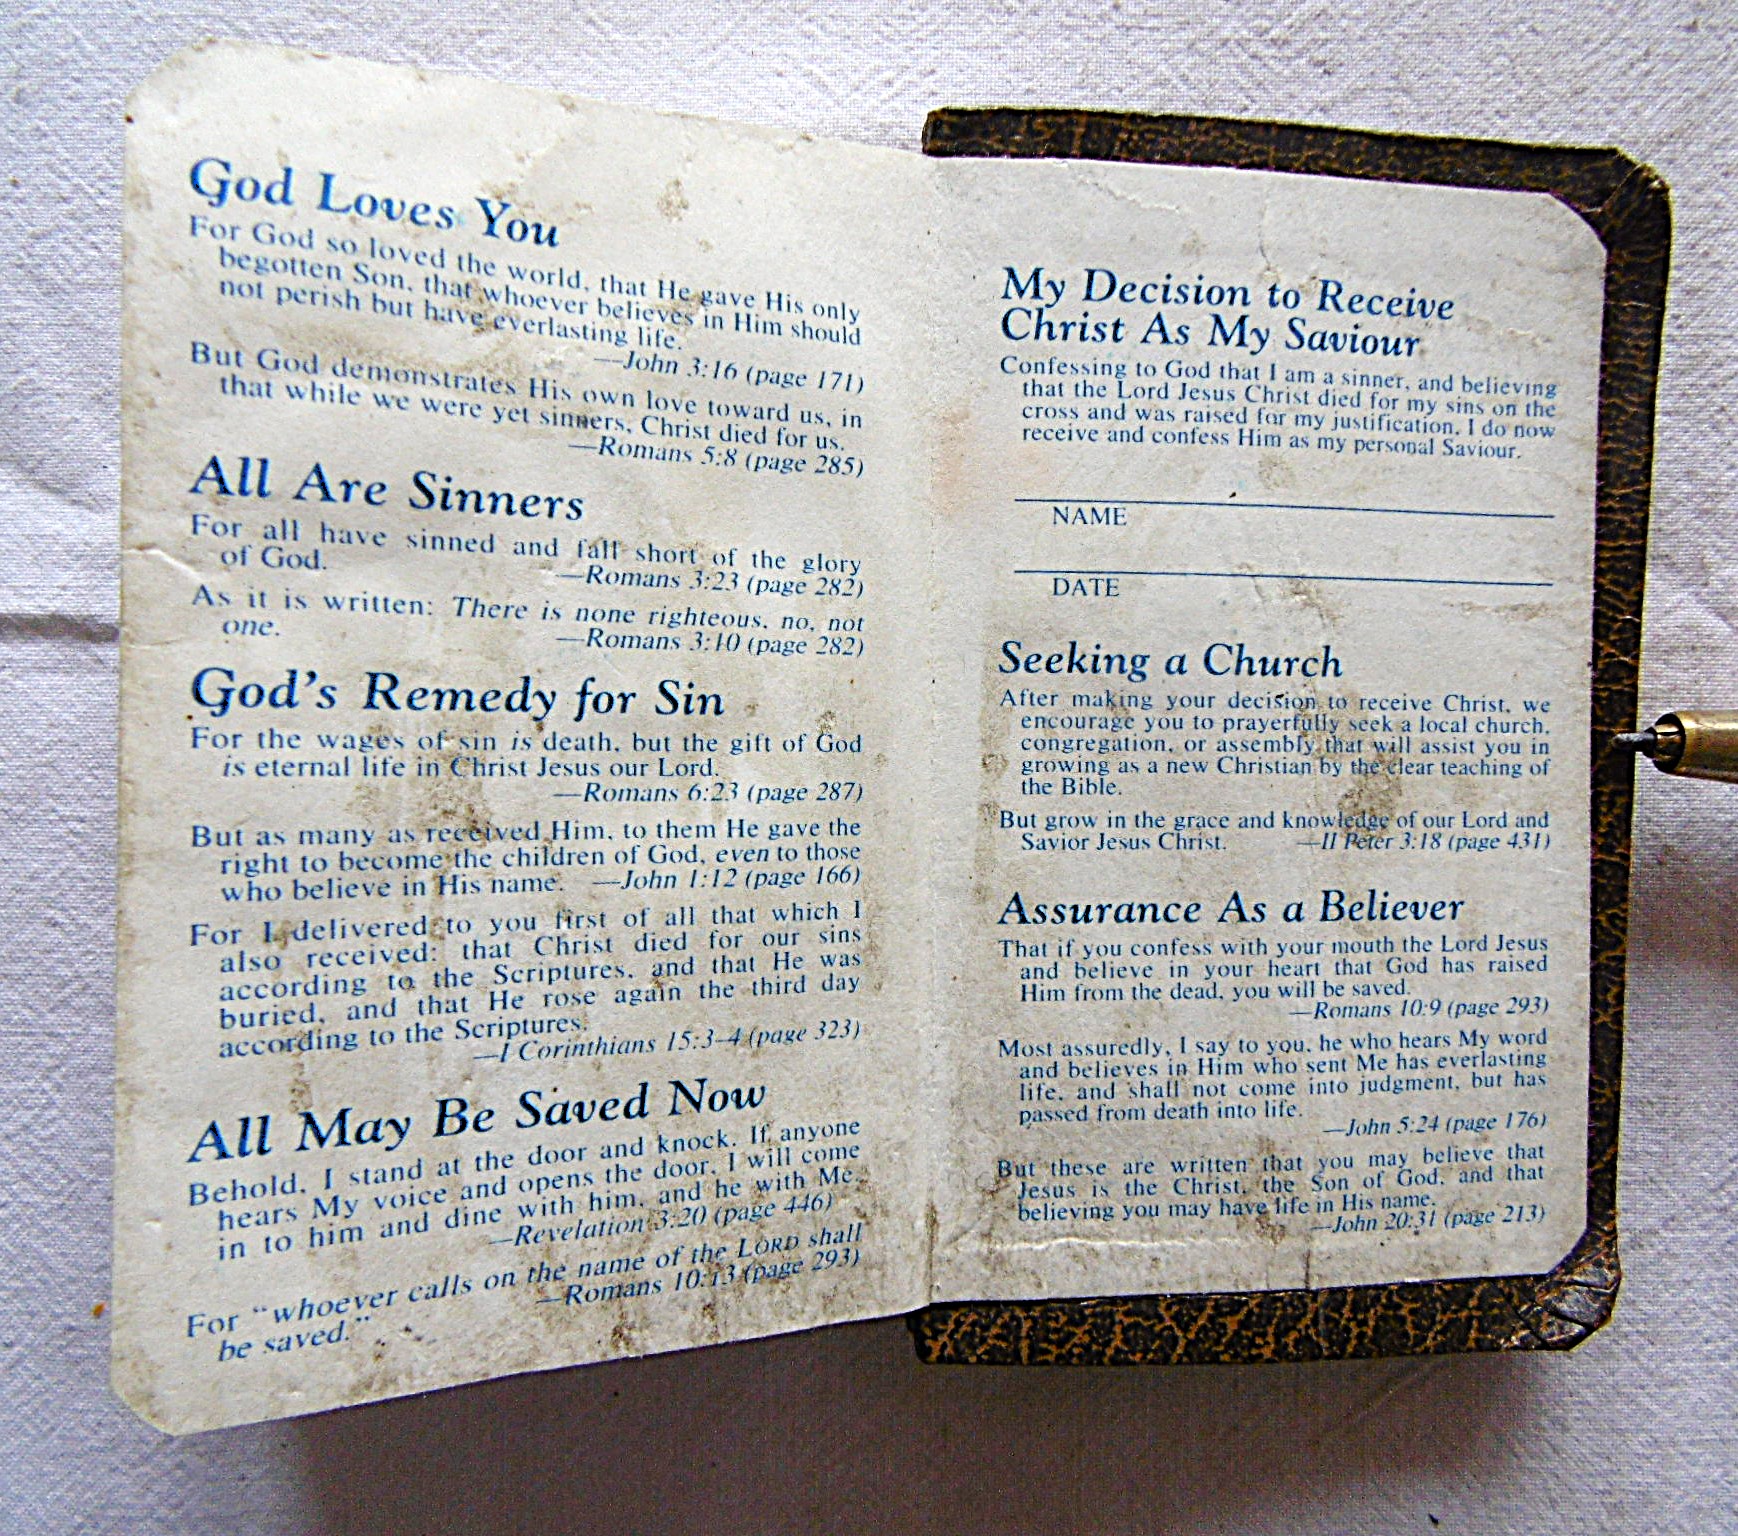 God Loves You
For God so loved the world, that He gave His only
begotten Son, that whoever believes in Him should
not perish but have everlasting life.
—John 3:16 (page 171)
But God demonstrates His own love toward us, in
that while we were yet sinners, Christ died for us.
—Romans 5:8 (page 285)
All Are Sinners
For all have sinned and fall short of the glory
of God.
—Romans 3:23 (page 282)
As it is written: There is none righteous, no, not
one.
—Romans 3:10 (page 282)
God's Remedy for Sin
For the wages of sin is death, but the gift of God
is eternal life in Christ Jesus our Lord.
—Romans 6:23 (page 287)
But as many as received Him, to them He gave the
right to become the children of God, even to those
who believe in His name. —John 1:12 (page 166)
For I delivered to you first of all that which I
also received: that Christ died for our sins
according to the Scriptures, and that He was
buried, and that He rose again the third day
according to the Scriptures.
—I Corinthians 15:3-4 (page 323)
All May Be Saved Now
Behold, I stand at the door and knock. If anyone
hears My voice and opens the door, I will come
in to him and dine with him, and he with Me.
—Revelation 3:20 (page 446)
For "whoever calls on the name of the LORD shall
be saved."
—Romans 10:13 (page 293)
My Decision to Receive
Christ As My Saviour
Confessing to God that I am a sinner, and believing
that the Lord Jesus Christ died for my sins on the
cross and was raised for my justification, I do now
receive and confess Him as my personal Saviour.
NAME
DATE
Seeking a Church
After making your decision to receive Christ, we
encourage you to prayerfully seek a local church,
congregation, or assembly that will assist you in
growing as a new Christian by the clear teaching of
the Bible.
But grow in the grace and knowledge of our Lord and
Savior Jesus Christ. —II Peter 3:18 (page 431)
Assurance As a Believer
That if you confess with your mouth the Lord Jesus
and believe in your heart that God has raised
Him from the dead, you will be saved.
—Romans 10:9 (page 293)
Most assuredly, I say to you, he who hears My word
and believes in Him who sent Me has everlasting
life, and shall not come into judgment, but has
passed from death into life.
—John 5:24 (page 176)
But these are written that you may believe that
Jesus is the Christ, the Son of God, and that
believing you may have life in His name.
—John 20:31 (page 213)